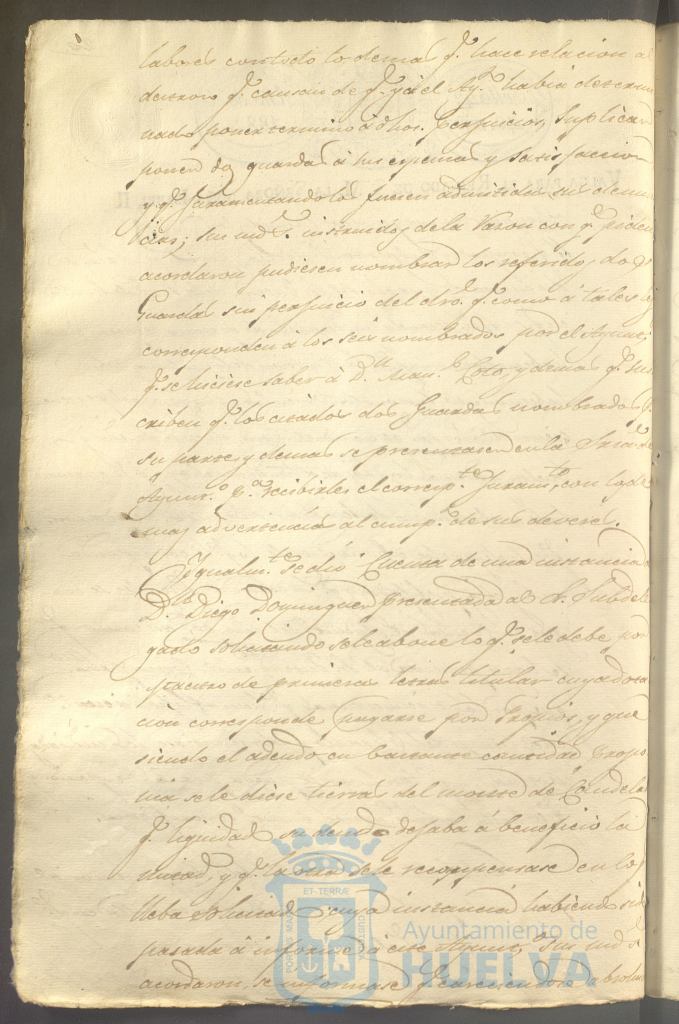 labores con todo lo demas q.e hace relacion al
destrozo q.e causan de q.e ya el Ay.to habia determi
nado poner termino à dhos. perjuicios, Suplican
poner dos guardas à sus espensas y satisfaccion
y q.e juramentandolos fuesen admitidas sus denun
cias; Sus mds. instruidos de la razon con q.e piden
acordaron pudiesen nombrar los referidos dos
Guardas sin perjuicio del dro. q.e como à tales
corresponden à los seis nombrados por el Ayunt.o
q.e se hiciese saber à D.n Man.l y demas q.e sus
criben q.e los citados dos Guardas nombrados p.r
su parte y demas se presentasen en la Sria. de
Ayunt.o p.a recibirles el corresp.te Juram.to, con las de
mas advertencias al cump.o de sus deveres.
Ygualm.te se dió Cuenta de una instancia
D.n Diego Dominguez presentada al S. Subdele
gado solicitando se le abone lo q.e se le debe por
maestro de primeras letras titular cuya dota
cion corresponde pagarse por Propios, y que
siendo el adeudo en bastante cantidad propo
nia se le diese tierras del monte de Candela
q.e liquidada su deuda dejaba à beneficio la
mitad, y q.e la otra se le recompensase en los
cuya instancia habiendo sido
pasada à informe à este Ayunt.o, Sus mds.
acordaron se informase q.e careciendose
PORTUS MARIS
ET TERRÆ
CUSTODIA
Ayuntamiento de
HUELVA